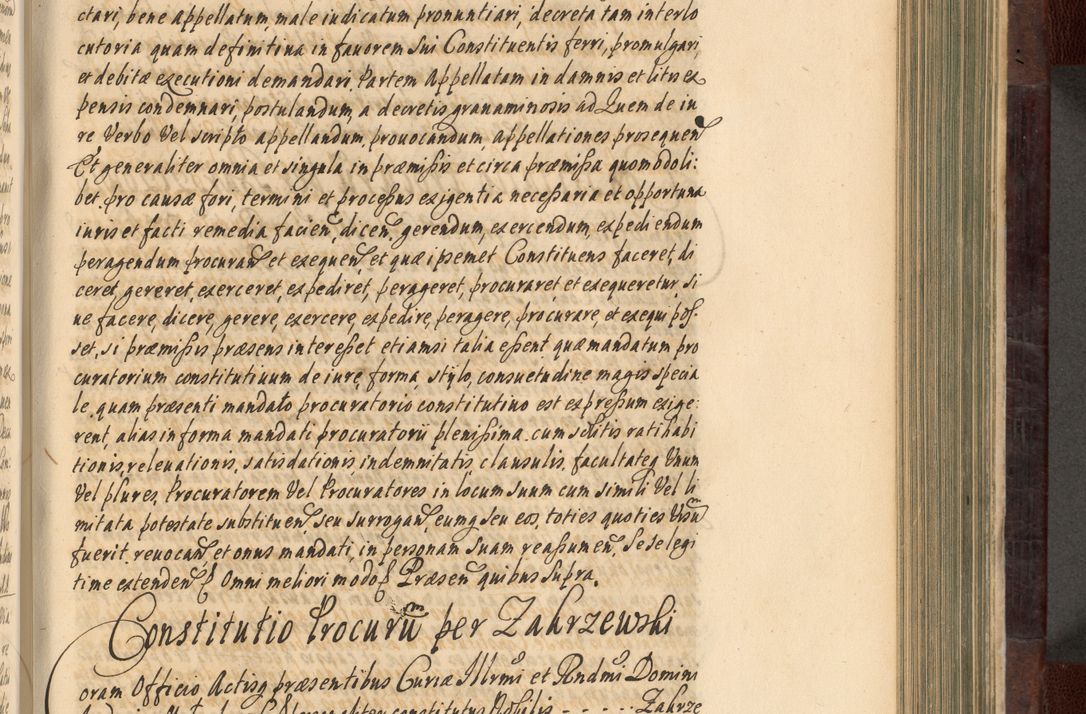 ctari, bene appellatum, male iudicatum pronuntiari, decreta tam interlo
cutoria quam definitiua in fauorem sui Constituentis ferri, promulgari,
et debitæ executioni demandari. Partem Appellatam in damnis et litis ex
pensis condemnari, postulandum, a decretis grauaminosis ad Quem de iu
re Verbo Vel scripto appellandum, prouocandum, appellationes prosequen
Et generaliter omnia et singula in præmißis et circa præmißa quomodoli:
bet pro causæ fori, termini et proceßus exigentia neceßaria et opportuna
iuris et facti remedia facien, dicen, gerendum, exercendum, expediendum
peragendum procuran et exequen, et quæ ipsemet Constituens faceret, di
ceret, gereret, exerceret, expediret, perageret, procuraret et exequeretur si
ue facere, dicere, gerere, exercere, expedire, peragere, procurare, et exequi poß-
set, si præmißis præsens intereßet etiamsi talia eßent quæ mandatum pro
curatorium constitutiuum de iure, forma, stylo, consuetudine magis specia
le, quam præsenti mandato procuratoris constitutiuo est expreßum exige:
rent, alias in forma mandati procuratorii pleni߀ima. cum solitis ratihabi
tionis, releuationis, satisdationis, indemnitatis, clausulis, facultateq Vnum
Vel plures Procuratorem Vel Procuratores in locum suum cum simili Vel li
mitata potestate substituen, seu surrogan, eumq seu eos, toties quoties Visum
fuerit, reuocan, et onus mandati, in personam suam reaßumen, Sese legi
time extenden Omni meliori modo Præsen quibus supra.
Constitutio Procurum per Zakrzewski
oram Officio Actisq præsentibus Curiæ Illrmi et Rndmi Domini
constitutus Nobilis - - - - - Zakrze